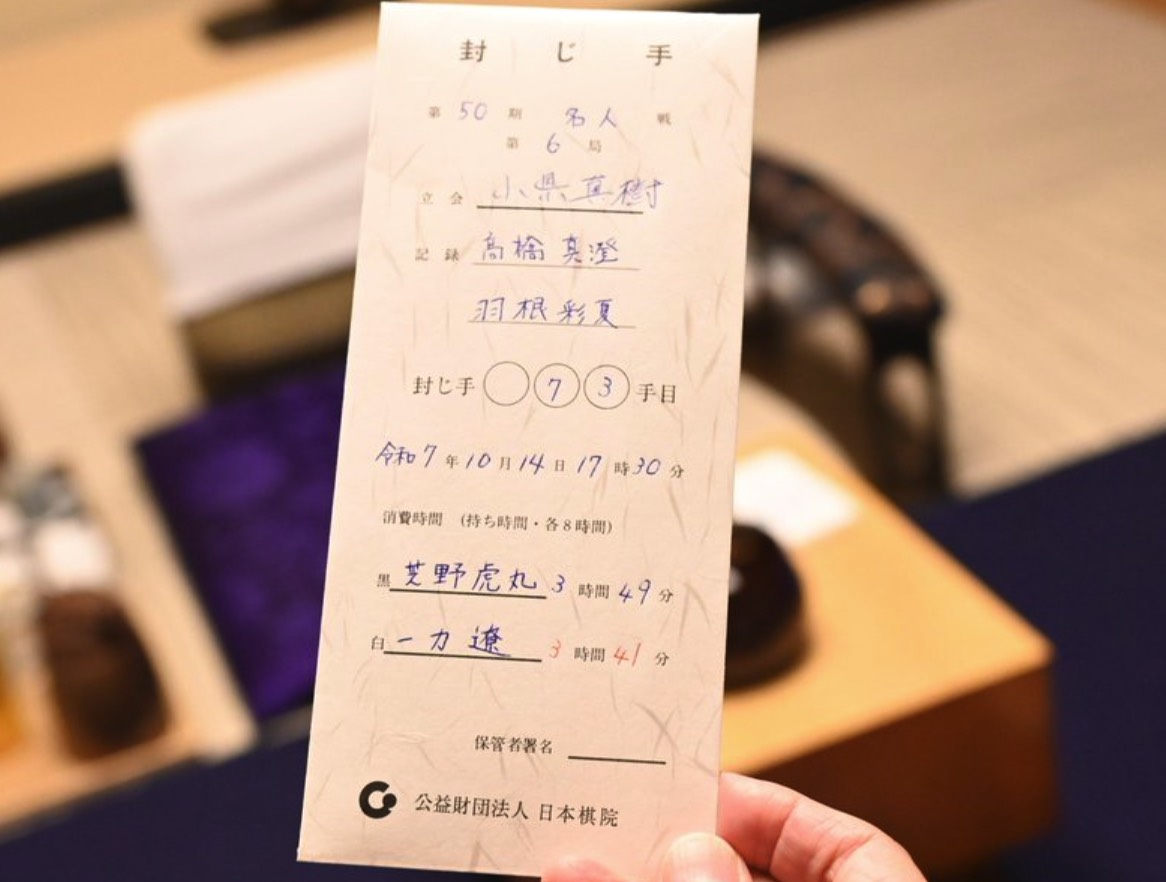 封じ手
第 50 期 名人 戦
第 6 局
立会 小県真樹
記録 高橋真澄
羽根彩夏
封じ手 7 3 手目
令和7年10月14日17時30分
消費時間 (持ち時間・各8時間)
黒 芝野虎丸 3時間49分
白 一力遼 3時間41分
保管者署名
公益財団法人 日本棋院